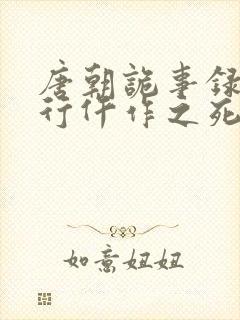 唐朝詭事録
行仵作之死
如意妞妞